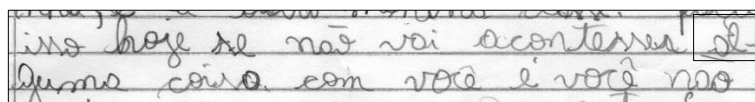 isso hoje se não vai acontesser al-
guma coisa com você é você não